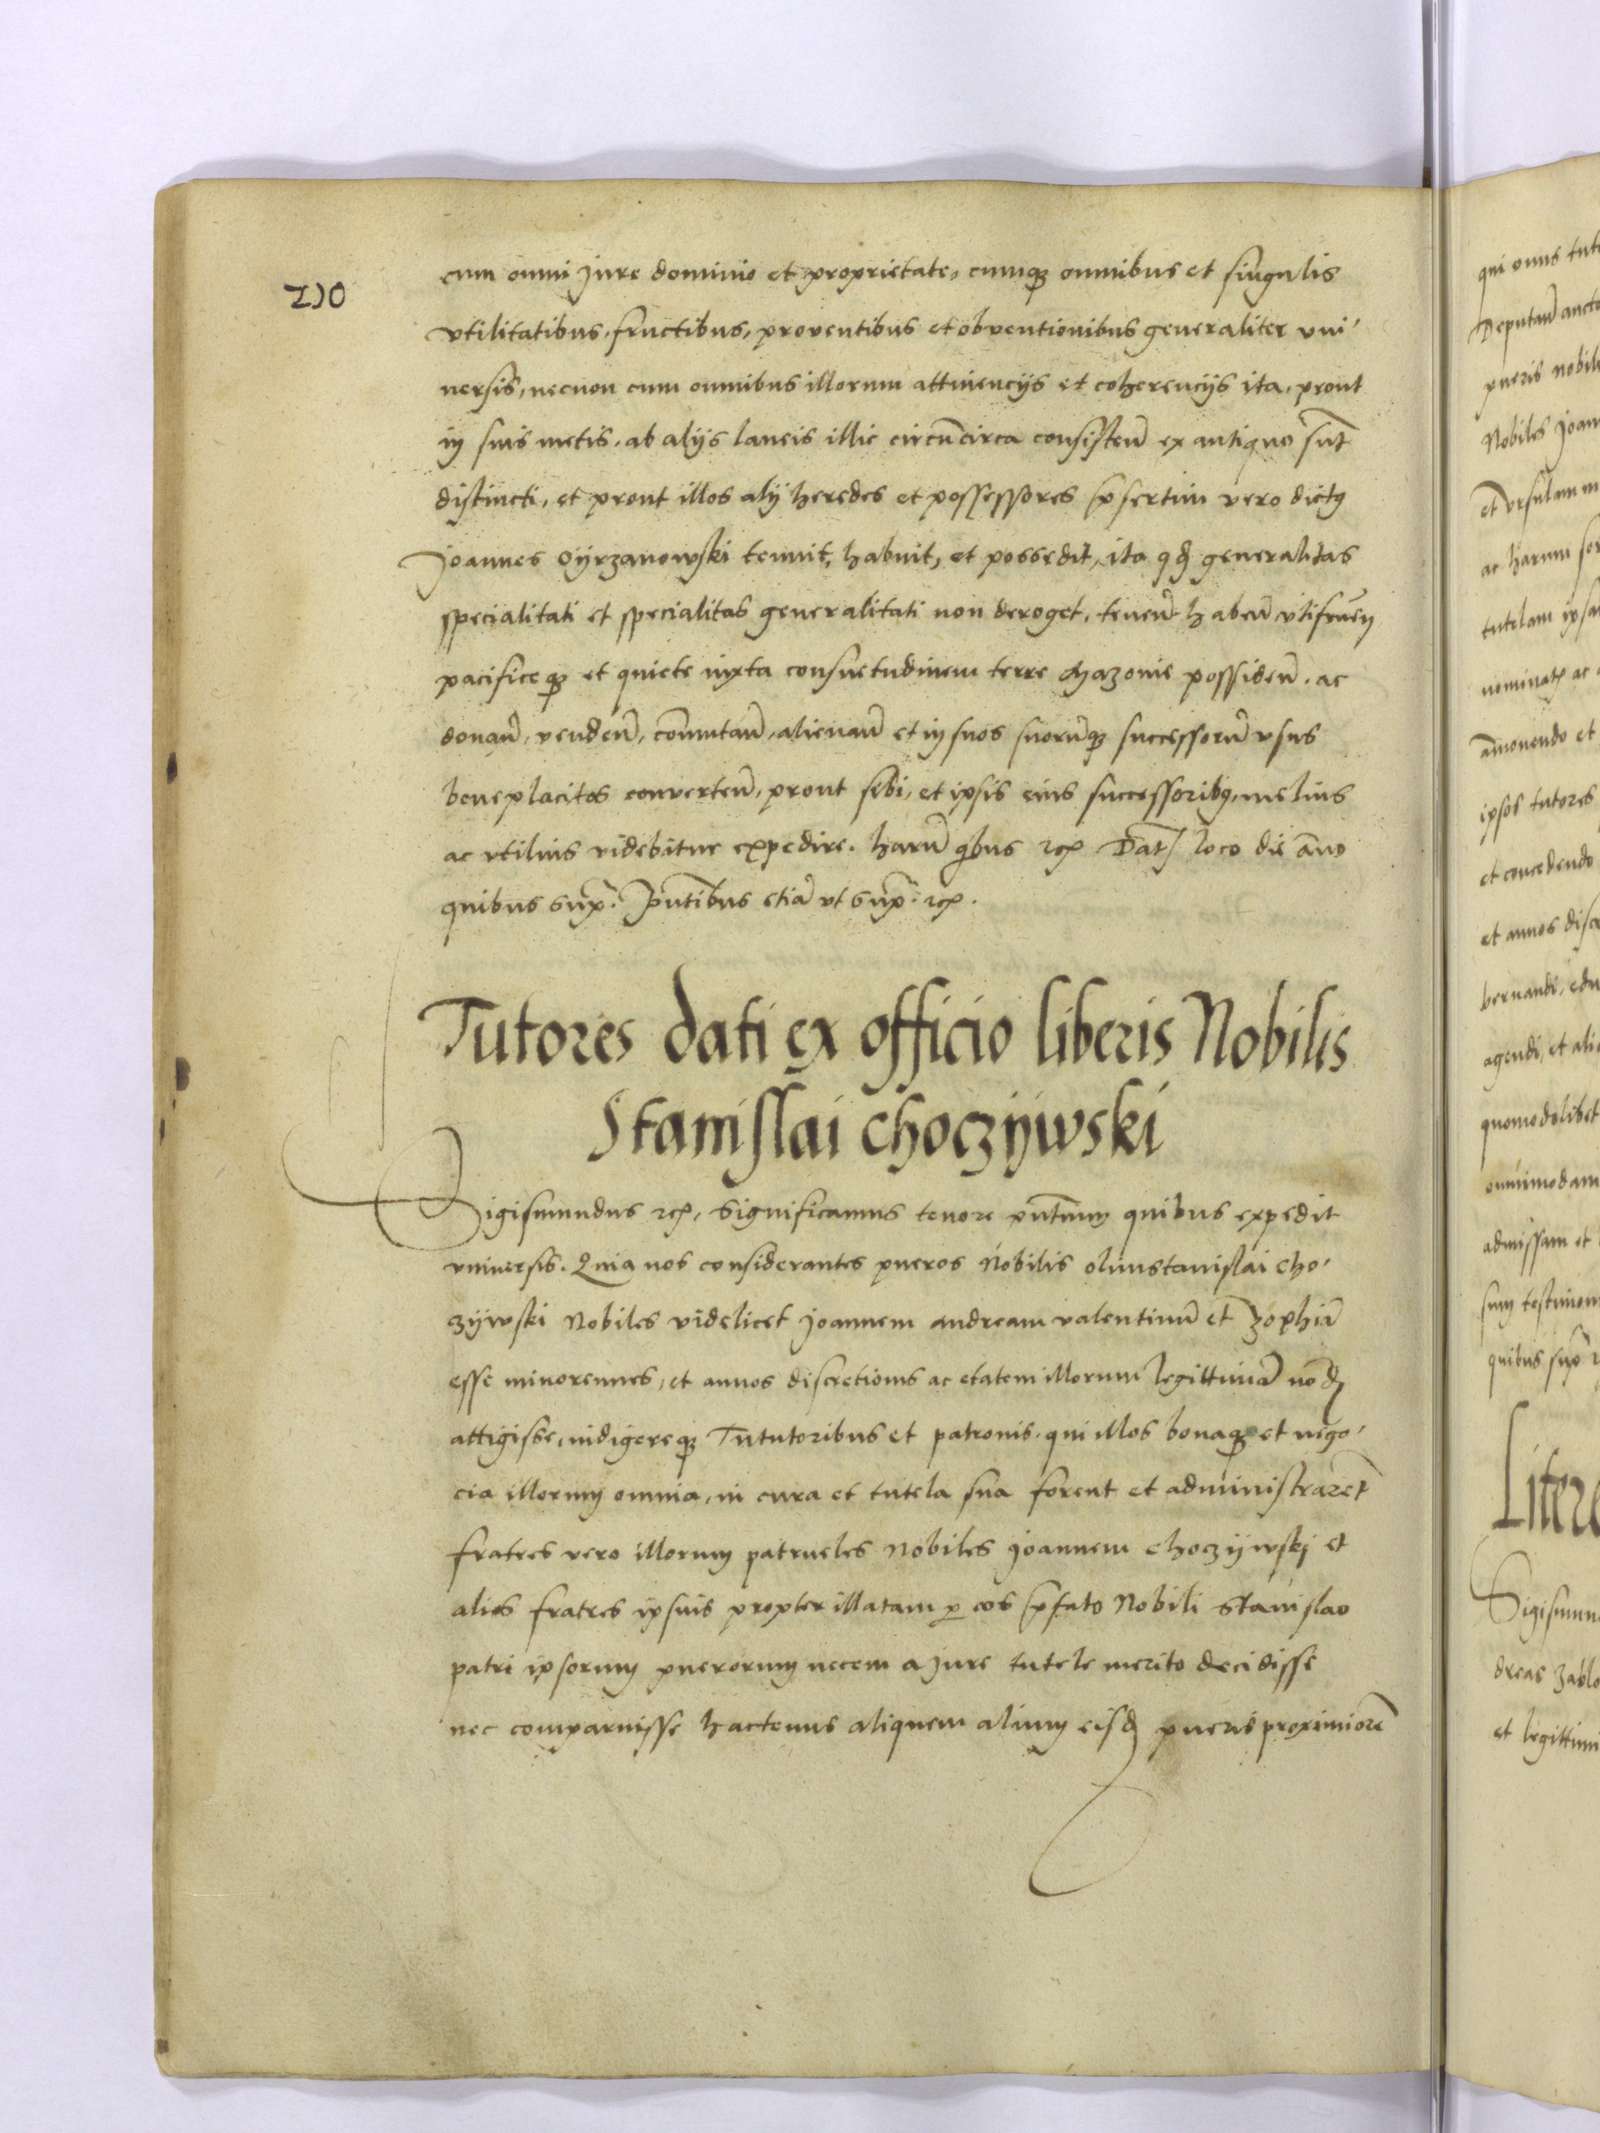 210
cum omni Jure dominio et proprietate, cumqꝫ omnibus et singulis
vtilitatibus, fructibus, proventibus et obventionibus generaliter vni-
uersis, necnon cum omnibus illorum attinencijs et coherencijs ita, prout
in suis metis, ab alijs laneis illic circūcirca consisteñ ex antiquo sūt
distincti, et prout illos alij heredes et possessores p̄sertim vero dictꝰ
Joannes Oÿrzanowski tenuit, habuit, et possedit, ita qđ generalitas
specialitati et specialitas generalitati non deroget, teneñ habeñ vtifrueñ
pacificeqꝫ et quiete iuxta consuetudinem terre Mazouie possideñ, ac
donañ, vendeñ, com̄utañ, alienañ et in suos suorūqꝫ successorū vsus
beneplacitos converteñ, prout sibi, et ipsis eius successoribꝰ, melius
ac vtilius videbitur expedire. harū qbus rcꝭ Dat̄ loco die āno
quibus supͣ. Pn̄tibus etiā vt supͣ. rcꝭ.
Tutores dati ex officio liberis Nobilis
Stanislai Choczÿwski
Sigismundus rcꝭ. Significamus tenore pn̄tium quibus expedit
vniuersis. Quia nos considerantes pueros Nobilis olim Stanislai Cho-
czÿwski Nobiles videlicet Joannem Andream Valentinū et Zophiā
esse minorennes, et annos discretionis ac etatem illorum legittimā nōđ
attigisse, indigereqꝫ Tututoribus et patronis, qui illos bonaqꝫ et nego-
cia illorum omnia, in cura et tutela sua forent et administrarēt
fratres vero illorum patrueles Nobiles Joannem Choczÿwski et
alios fratres ipsius propter illatam ꝑ eos p̄fato Nobili Stanislao
patri ipsorum puerorum necem a Jure tutele merito decidisse
nec comparuisse hactenus aliquem alium eisđ pueris proximiorē
qui onus
nobiles Joan
et vrsulam
ac harum
tutelam
ac
et
ipsos tutores
et concedendo
et annos
agendi, et
quomodolibet
omnimodam
admissam et
quibus
Litere
Sigismun
dreas
et legittimi